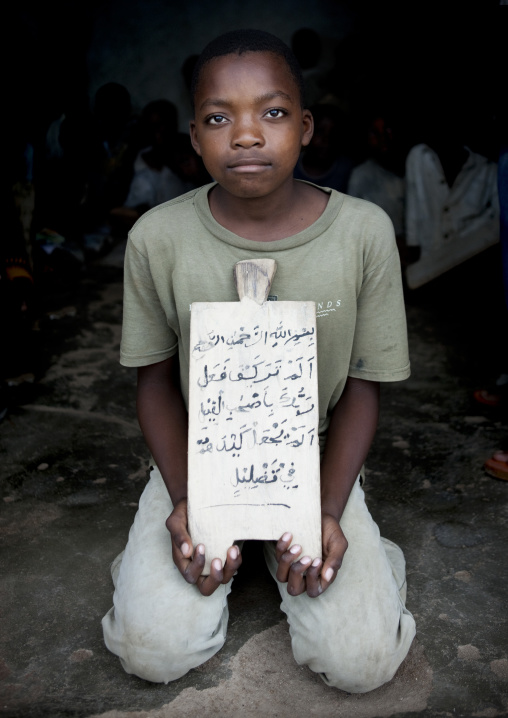 بِسْمِ اللَّهِ الرَّحْمٰنِ الرَّحِيْمِ
اَلَمْ تَرَ كَيْفَ فَعَلَ
رَبُّكَ بِاَصْحٰبِ الْفِيْلِ
اَلَمْ يَجْعَلْ كَيْدَهُمْ
فِيْ تَضْلِيْلٍ
NDS